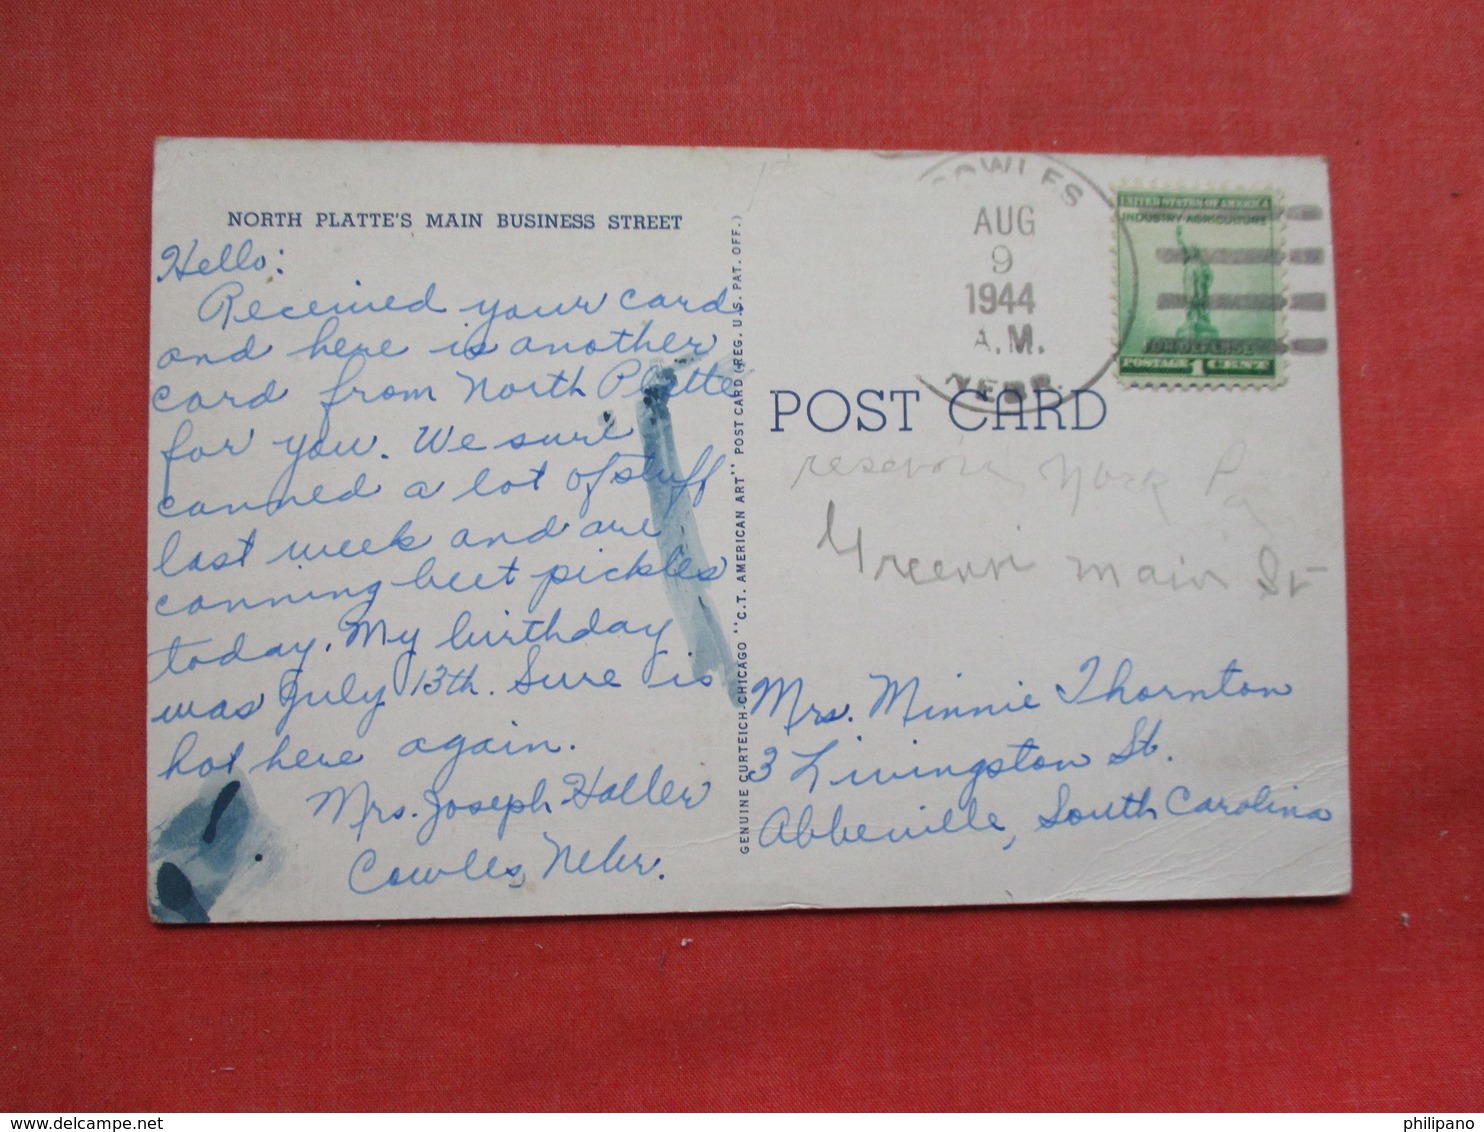 NORTH PLATTE'S MAIN BUSINESS STREET
Hello:
Received your card
and here is another
card from North Platte
for you. We sure
canned a lot of stuff
last week and are
canning beet pickles
today. My birthday
was July 13th. Sure is
hot here again.
Mrs. Joseph Haller
Cowles, Nebr.
GENUINE CURTEICH-CHICAGO "C.T. AMERICAN ART" POST CARD (REG. U.S. PAT. OFF.)
COWLES
AUG
9
1944
A.M.
NEBR.
UNITED STATES OF AMERICA
INDUSTRY AGRICULTURE
FOR DEFENSE
POSTAGE 1 CENT
POST CARD
York Pa
Main St
Mrs. Minnie Thornton
3 Livingston St.
Abbeville, South Carolina
http://www.delcampe.net
philipano